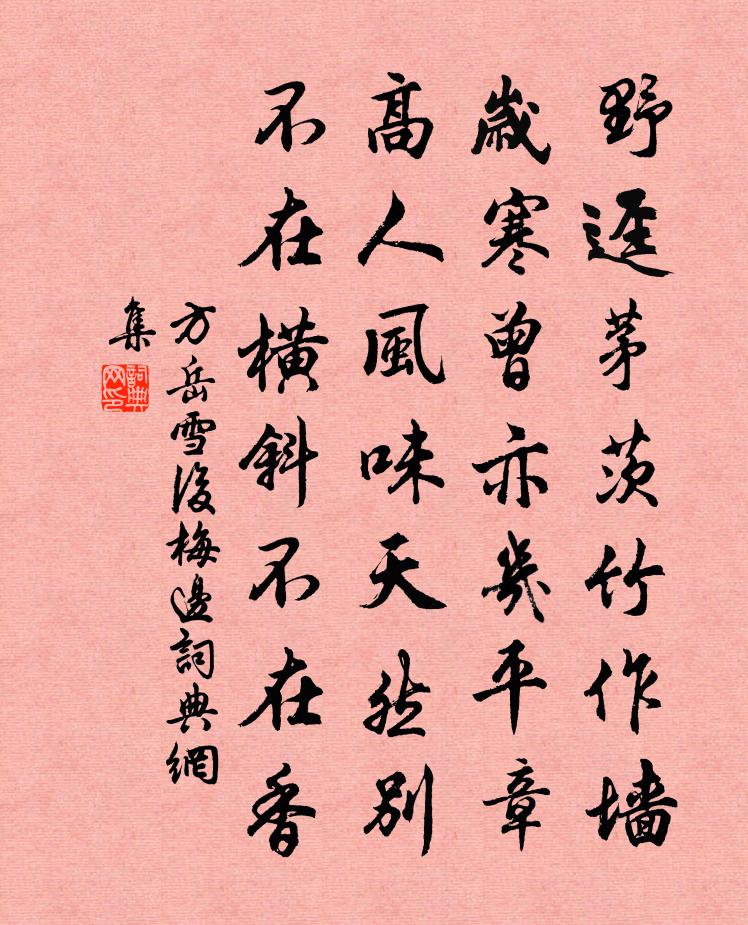 野逕茅茨竹作墙
歲寒曾亦幾平章
髙人風味天然别
不在橫斜不在香
方岳雪後梅邊詞典網
集
詞典
网印